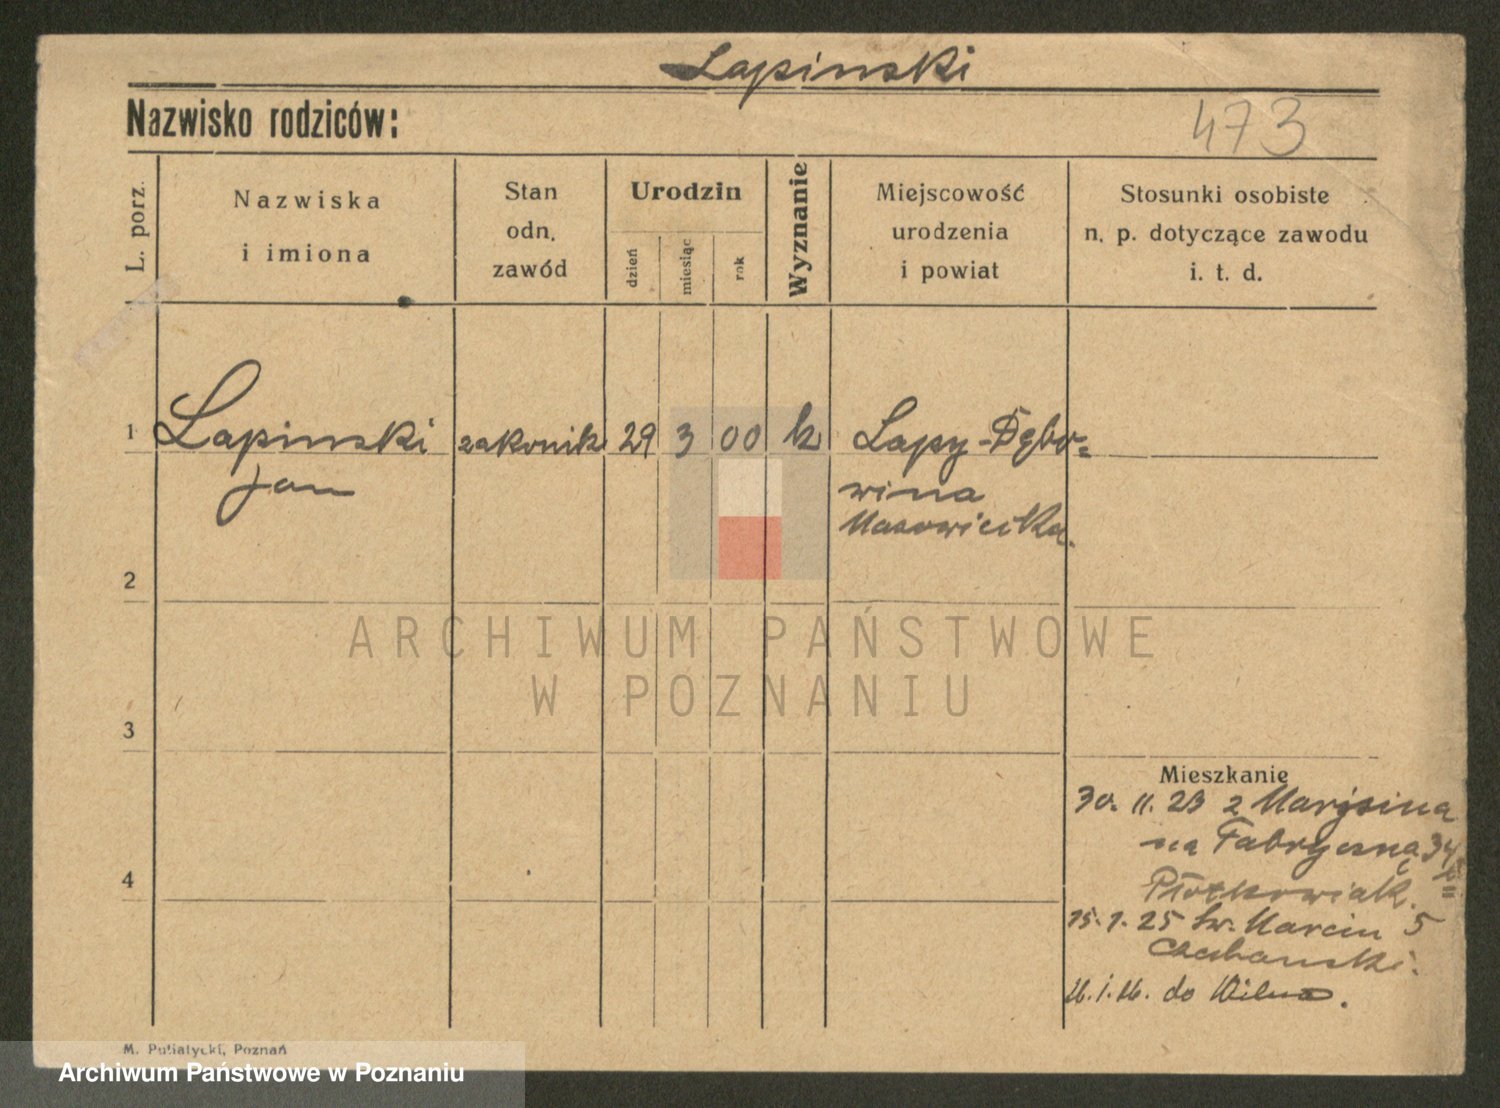 Łapinski
Nazwisko rodziców:
473
L. porz.
Nazwiska
i imiona
Stan
odn.
zawód
Urodzin
dzień
miesiąc
rok
Wyznanie
Miejscowość
urodzenia
i powiat
Stosunki osobiste
n. p. dotyczące zawodu
i. t. d.
1
Łapinski
Jan
zakonik
29
3
00
k
Łapy-Dębo=
wina
Masowiecka.
2
ARCHIWUM PAŃSTWOWE
W POZNANIU
3
Mieszkanie
30. 11. 23 z Marysina
na Fabryczną 34
4
15. 1. 25 św. Marcin 5
do Wilna.
M. Putiatycki, Poznań
Archiwum Państwowe w Poznaniu